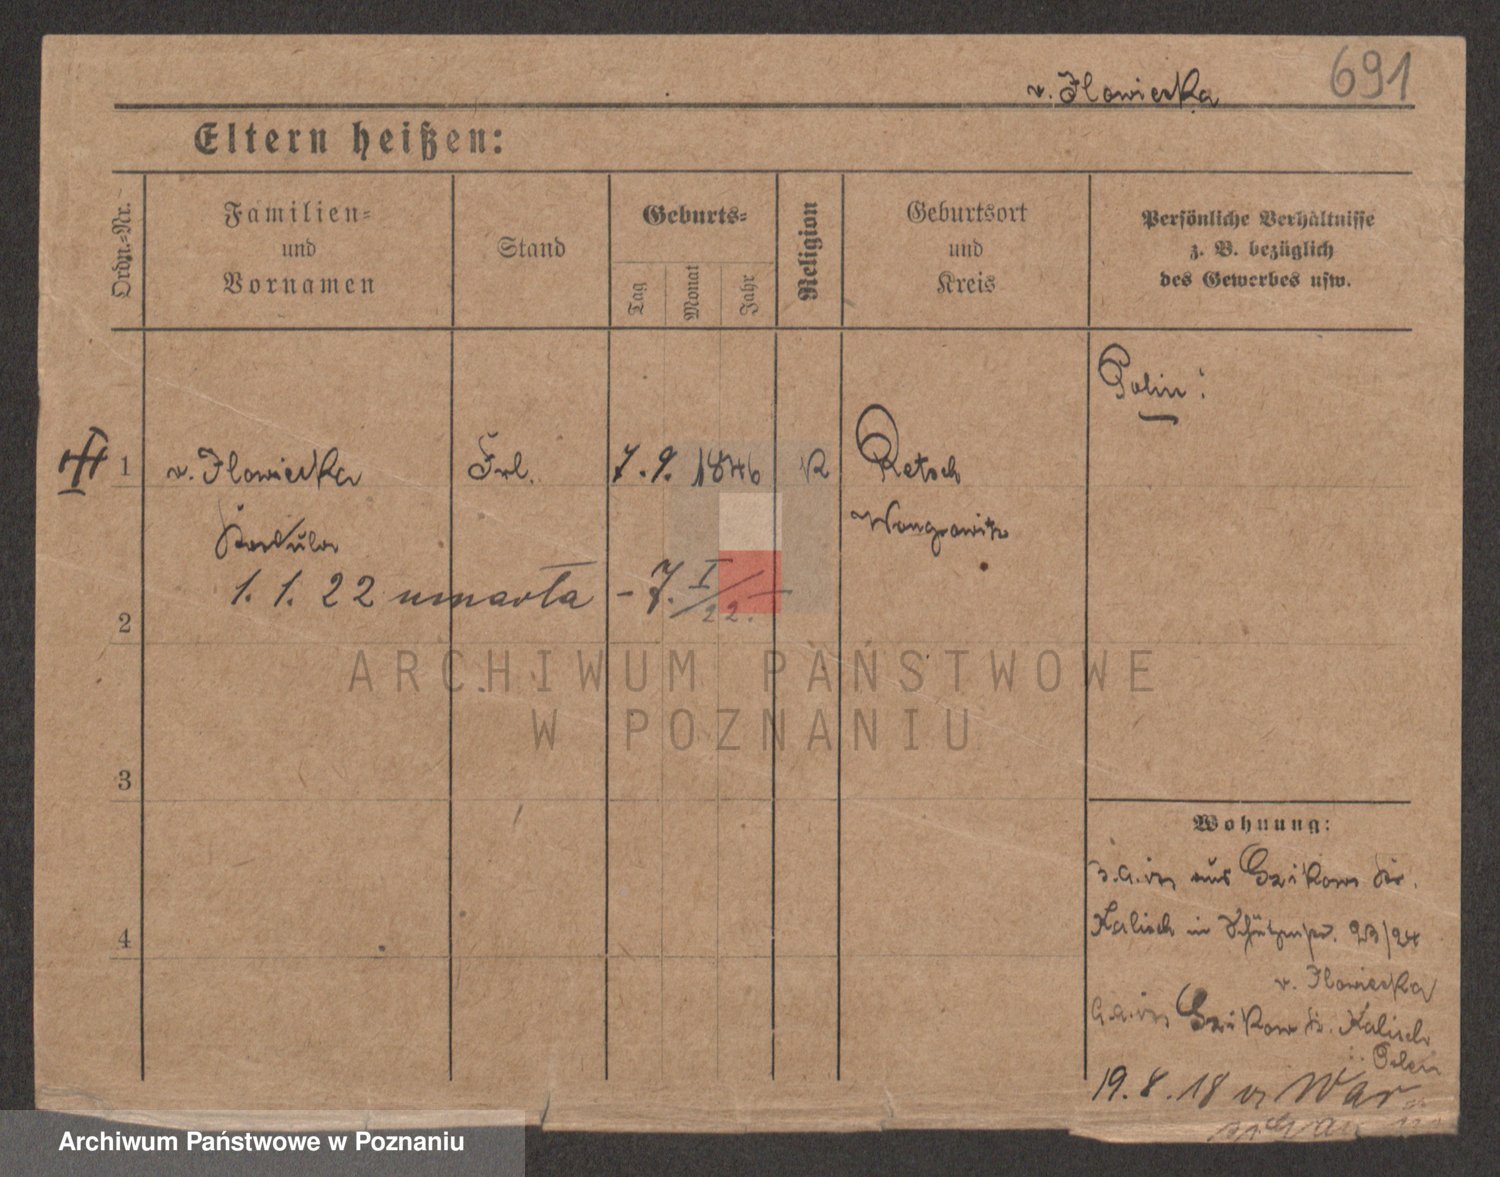 691
v. Ilowiecka
Eltern heißen:
Ordn.-Nr.
Familien-
und
Vornamen
Stand
Geburts-
Tag
Monat
Jahr
Religion
Geburtsort
und
Kreis
Persönliche Verhältnisse
z. B. bezüglich
des Gewerbes usw.
Polin!
1 v. Ilowiecka Frl. 7. 9. 1846 K Retsch
Wongrowitz
1. 1. 22 umarła - 7. I
22.
2
ARCHIWUM PAŃSTWOWE
W POZNANIU
3
Wohnung:
aus
Kalisch in 23/24
4
v. Ilowiecka
Kalisch
Polen
19. 8. 18 War-
Archiwum Państwowe w Poznaniu